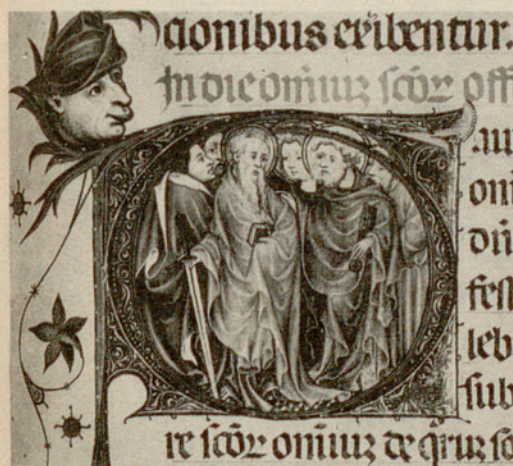 cionibus exibentur.
In die omīuz scōr off
au
om
dn̄
fes
leb
sub
re scōr omīuz de qruz so